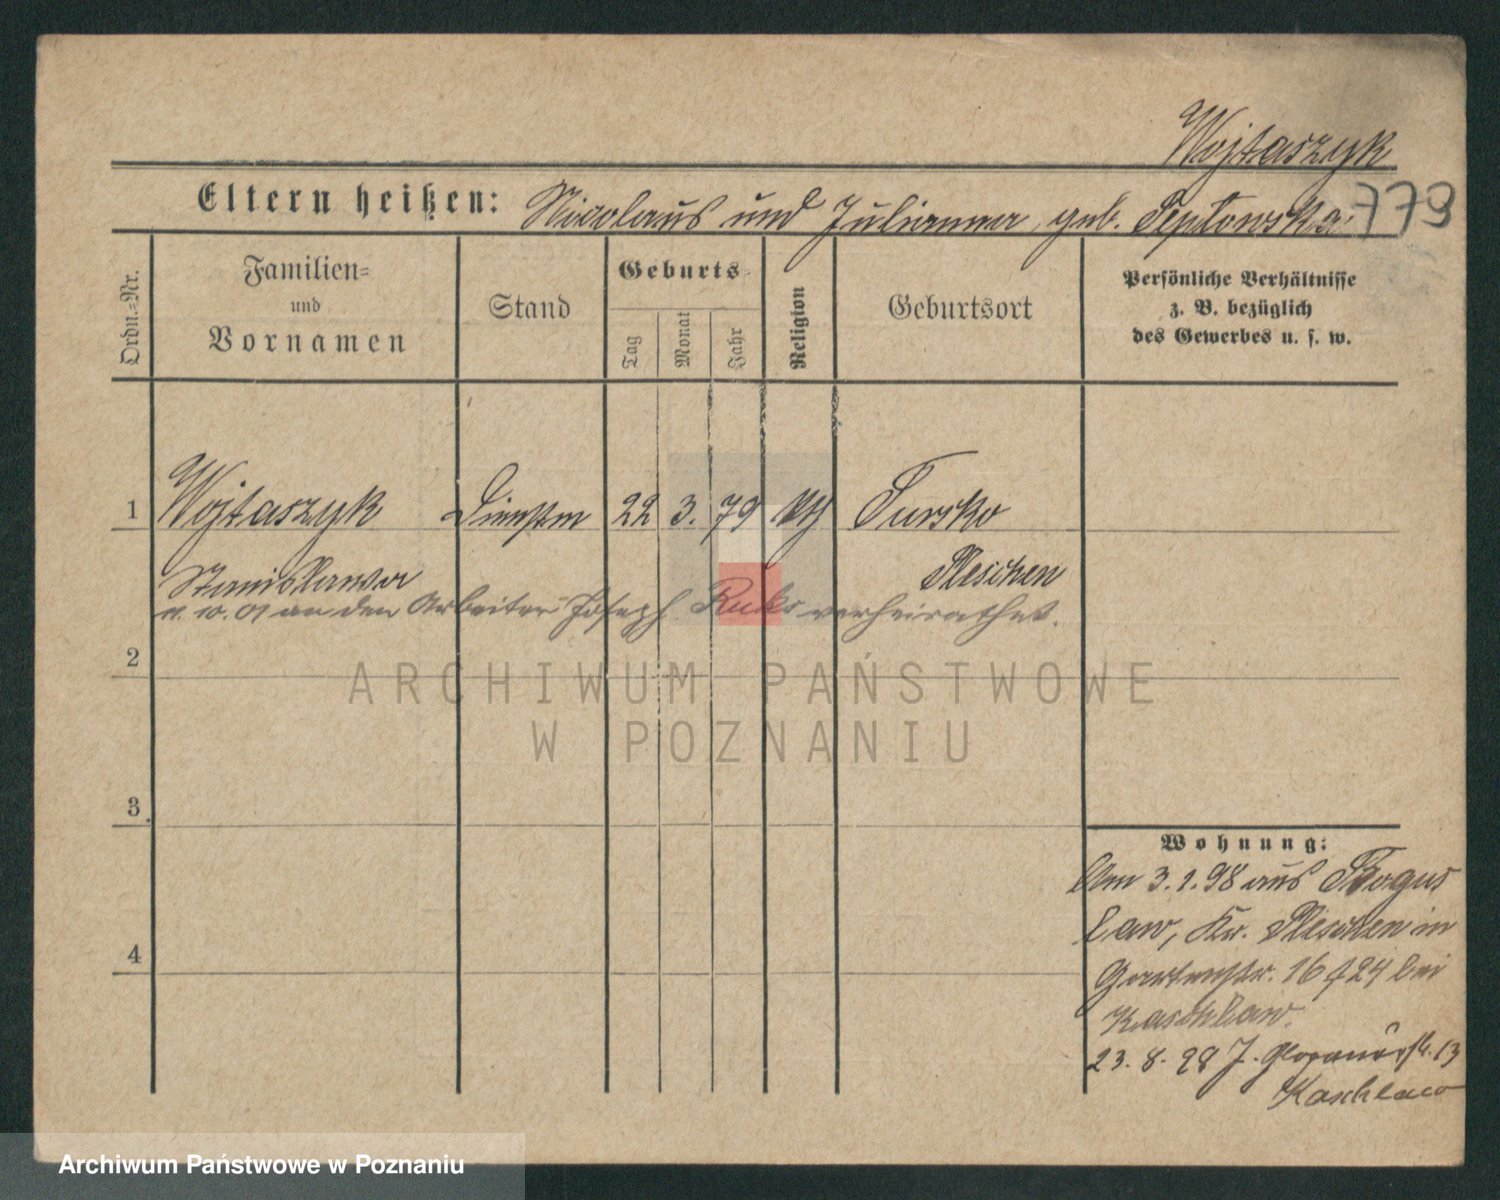 Wojtaszyk
Eltern heißen: Nicolaus und Julianna, geb. Septowska
779
Ordn.=Nr.
Familien=
und
Vornamen
Stand
Geburts=
Tag
Monat
Jahr
Religion
Geburtsort
Persönliche Verhältnisse
z. B. bezüglich
des Gewerbes u. s. w.
1 Wojtaszyk Dienstm 22 3. 79 Tursko
Stanislawa Pleschen
10. 01 an den Arbeiter Joseph Ruks verheirathet.
2
ARCHIWUM PAŃSTWOWE
W POZNANIU
3.
4
Wohnung:
Am 3.1.98 aus Bogus
law, Kr. Pleschen in
Gartenstr. 16 bei
Kaschlaw.
23. 8. 98 13
Kaschlaw
Archiwum Państwowe w Poznaniu